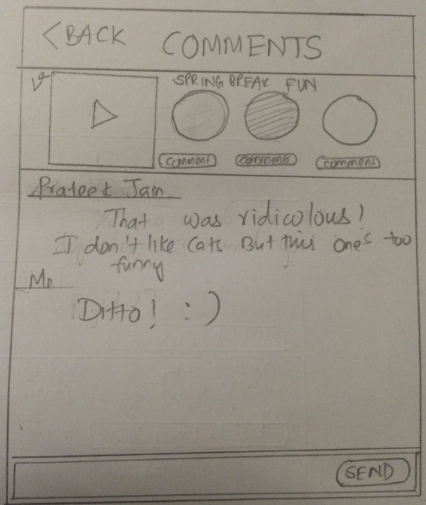 <BACK COMMENTS
SPRING BREAK FUN
comment comments comment
Prateek Jain
That was ridicolous!
I don't like cats But this one's too
funny
Me
Ditto! :)
SEND